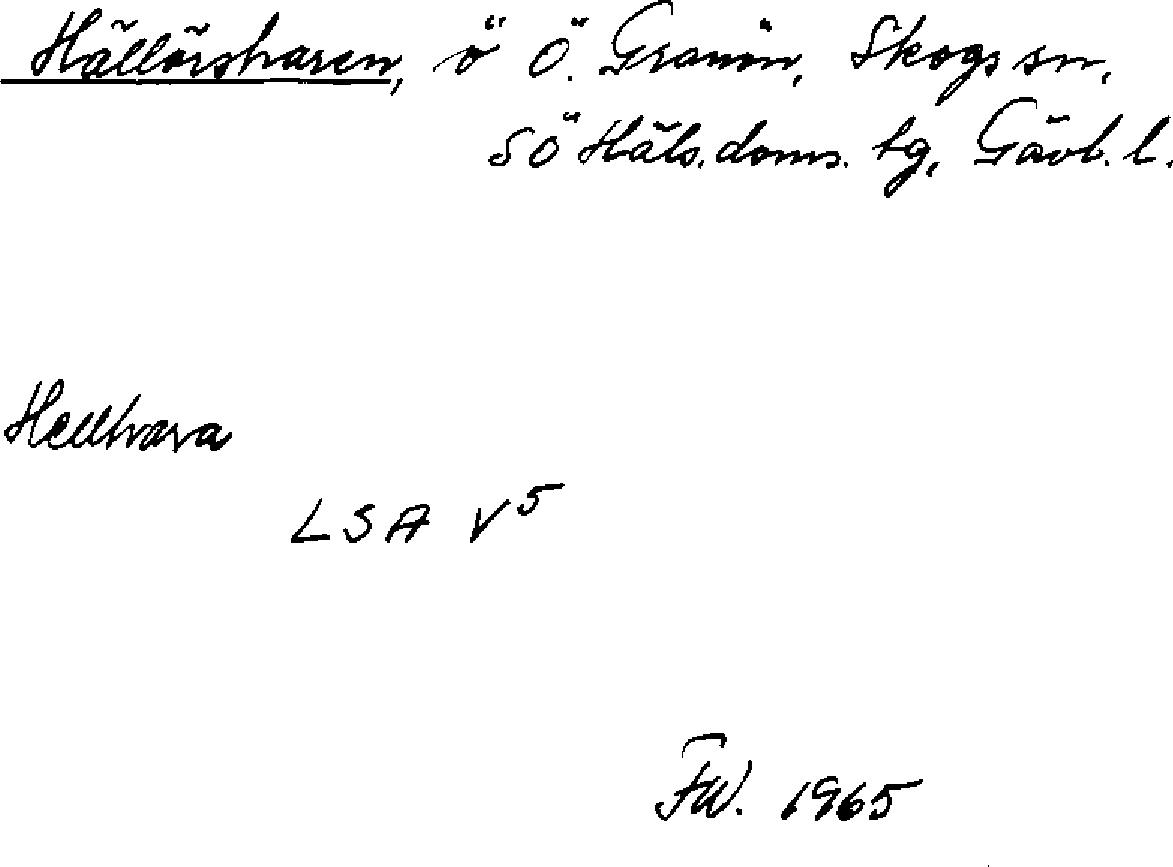 Hällörsharen, ö Ö. Granön, Skogs sn,
SÖ Häls. doms. tg, Gävl. l.
Hellhara
LSA V5
FW. 1965